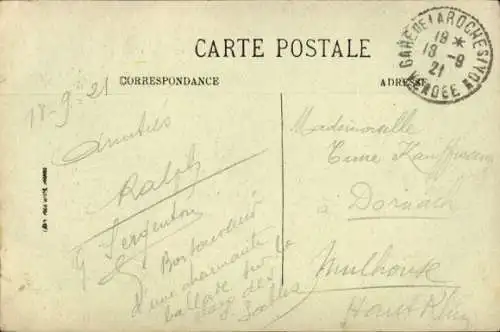 CARTE POSTALE
CORRESPONDANCE
ADRESSE
GARE DE LA ROCHE S YON
18 *
18 - 9
21
VENDEE
18-9-21
Amitiés
Ralph
Bon souvenir
d'une charmante
ballade sur la
plage des
Sables
Mademoiselle
à Dornach
Mulhouse
Haut Rhin